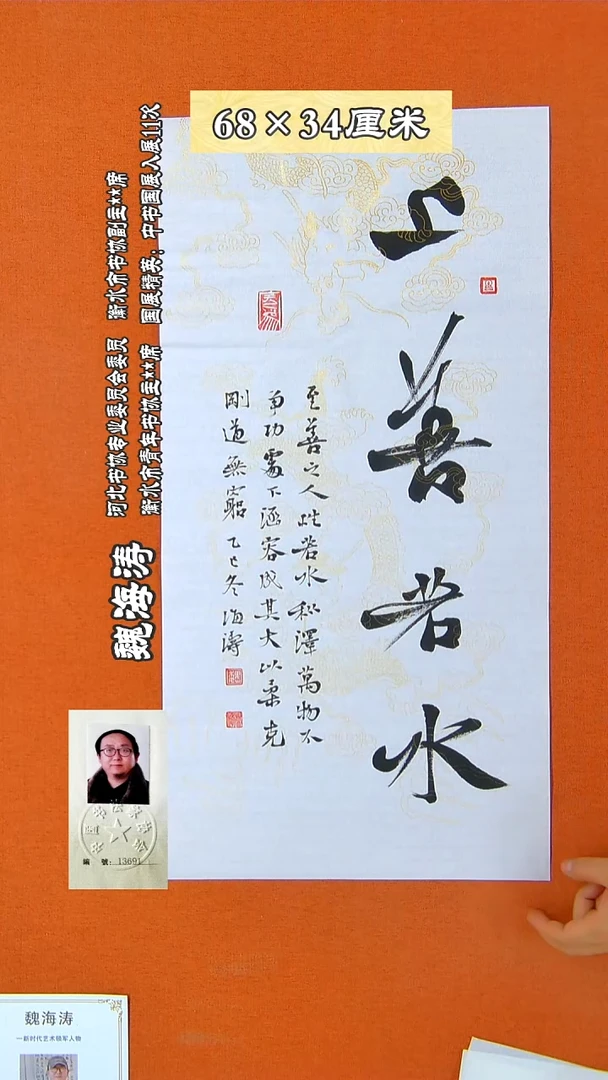 68×34厘米
上善若水
至善之人如若水利澤萬物不
争功處下涵容成其大以柔克
剛道無窮 乙巳冬海涛
国展精英：中书国展入展11次
衡水市书协副主**席
衡水市青年书协主**席
河北书协专业委员会委员
魏海涛
编 號：13691
魏海涛
—新时代艺术领军人物